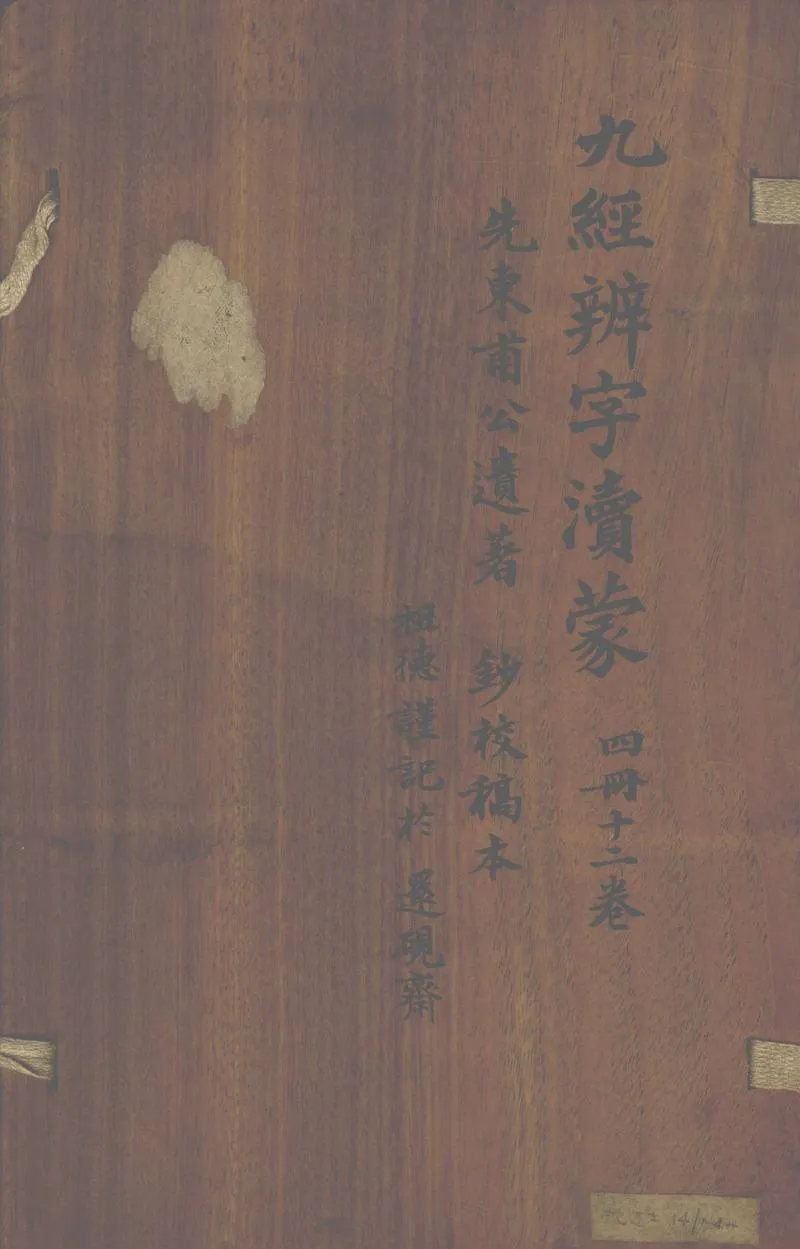 九經辨字瀆蒙 四冊十二卷
先東甫公遺著 鈔校稿本
祖德謹記於還硯齋
14/